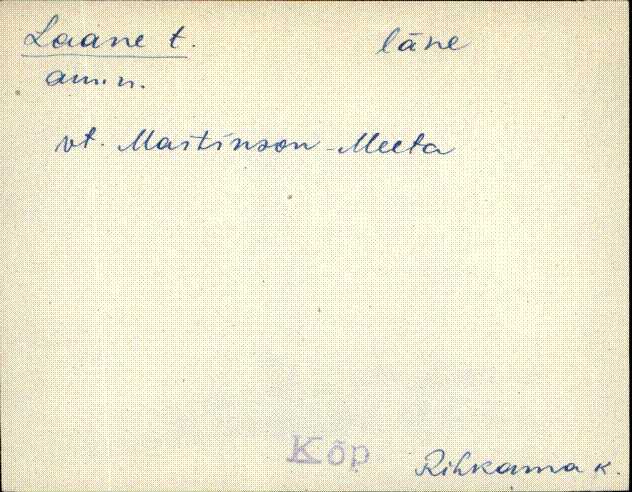 Laane t. läne
am. n.
vt. Martinson-Meeta
Kõp
Rihkama k.